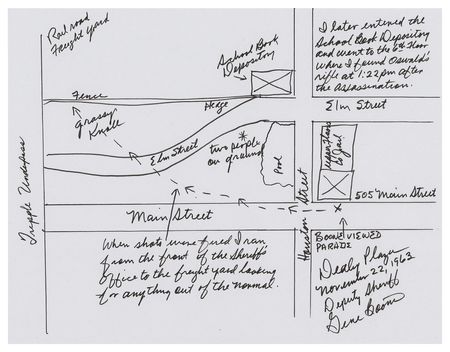 Railroad
Freight yard
School Book
Depository
I later entered the
School Book Depository
and went to the 6th floor
where I found Oswald's
rifle at 1:22pm after
the assassination.
Fence
Hedge
Elm Street
Grassy
Knoll
Elm Street
two people
on ground
Pool
to Jail
Houston Street
Tripple Underpass
505 Main Street
Main Street
X
When shots were fired I ran
from the front of the Sheriff's
office to the freight yard looking
for anything out of the normal.
BOONE VIEWED
PARADE
Dealy Plaza
November 22, 1963
Deputy Sheriff
Gene Boone